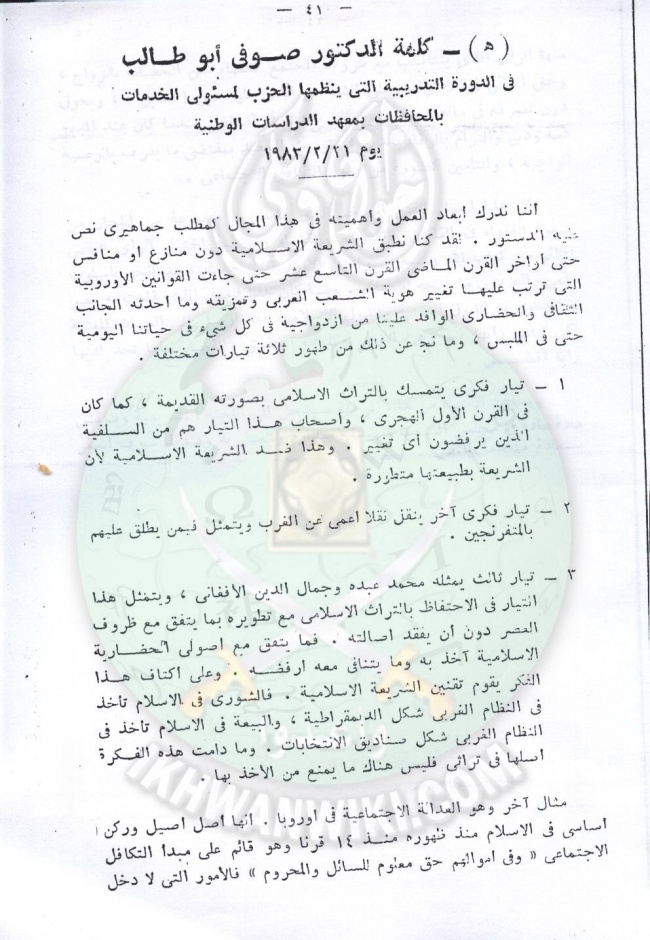 - ٤١ -
(هـ) - كلمة الدكتور صوفى أبو طالب
فى الدورة التدريبية التى ينظمها الحزب لمسئولى الخدمات
بالمحافظات بمعهد الدراسات الوطنية
يوم ١٩٨٢/٢/٢١
أننا ندرك أبعاد العمل وأهميته فى هذا المجال كمطلب جماهيرى نص
عليه الدستور . لقد كنا نطبق الشريعة الاسلامية دون منازع او منافس
حتى أواخر القرن الماضى القرن التاسع عشر حتى جاءت القوانين الأوروبية
التى ترتب عليها تغيير هوية الشعب العربى وتمزيقه وما أحدثه الجانب
الثقافى والحضارى الوافد علينا من ازدواجية فى كل شىء فى حياتنا اليومية
حتى فى الملبس ، وما نجم عن ذلك من ظهور ثلاثة تيارات مختلفة .
١ - تيار فكرى يتمسك بالتراث الاسلامى بصورته القديمة ، كما كان
فى القرن الأول الهجرى ، وأصحاب هذا التيار هم من السلفية
الذين يرفضون أى تغيير . وهذا ضد الشريعة الاسلامية لأن
الشريعة بطبيعتها متطورة .
٢ - تيار فكرى آخر ينقل نقلا أعمى عن الغرب ويتمثل فيمن يطلق عليهم
بالمتفرنجين .
٣ - تيار ثالث يمثله محمد عبده وجمال الدين الأفغانى ، ويتمثل هذا
التيار فى الاحتفاظ بالتراث الاسلامى مع تطويره بما يتفق مع ظروف
العصر دون أن يفقد اصالته . فما يتفق مع اصولى الحضارية
الاسلامية آخذ به وما يتنافى معه أرفضه . وعلى اكتاف هذا
الفكر يقوم تقنين الشريعة الاسلامية . فالشورى فى الاسلام تأخذ
فى النظام الغربى شكل الديمقراطية ، والبيعة فى الاسلام تأخذ فى
النظام الغربى شكل صناديق الانتخابات . وما دامت هذه الفكرة
اصلها فى تراثى فليس هناك ما يمنع من الأخذ بها .
مثال آخر وهو العدالة الاجتماعية فى اوروبا . انها أصل أصيل وركن
أساسى فى الاسلام منذ ظهوره منذ ١٤ قرنا وهو قائم على مبدأ التكافل
الاجتماعى « وفى أموالهم حق معلوم للسائل والمحروم » فالأمور التى لا دخل
IKHWANWIKI.COM